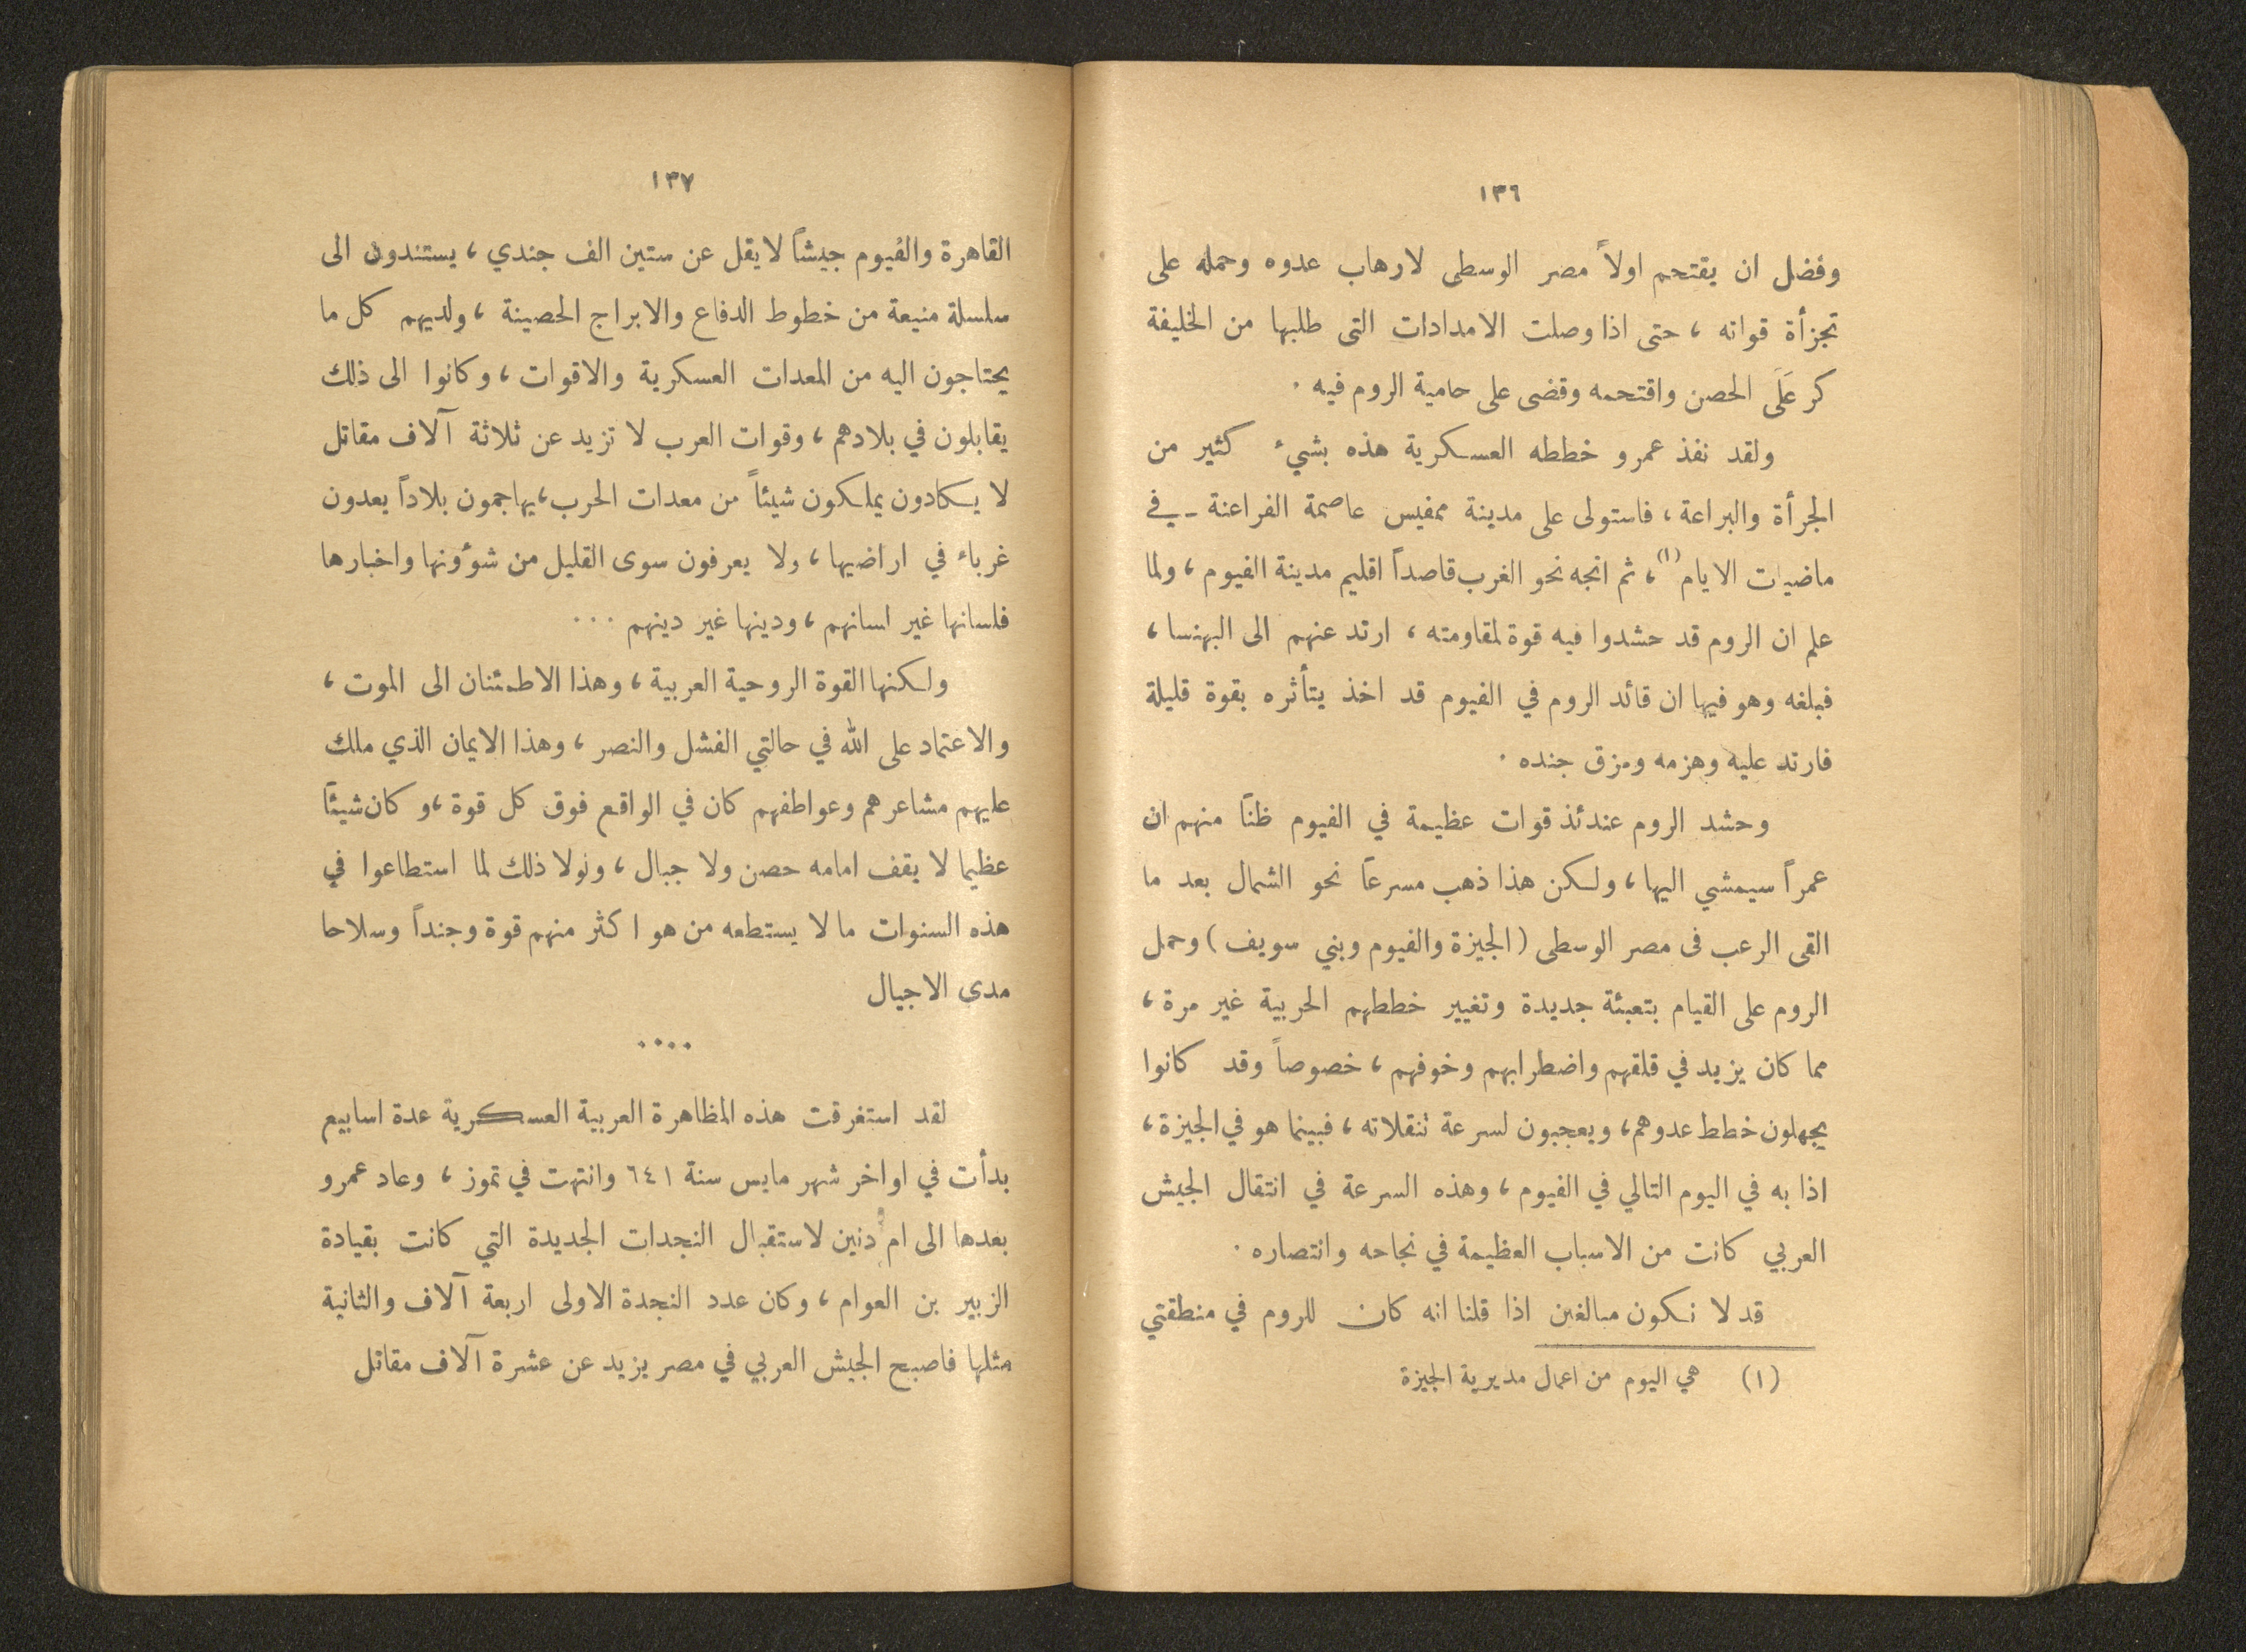 ١٣٦
وفضل ان يقتحم اولاً مصر الوسطى لارهاب عدوه وحمله على
تجزأة قواته ، حتى اذا وصلت الامدادات التى طلبها من الخليفة
كر عَلَى الحصن واقتحمه وقضى على حامية الروم فيه .
ولقد نفذ عمرو خططه العسكرية هذه بشيء كثير من
الجرأة والبراعة ، فاستولى على مدينة ممفيس عاصمة الفراعنة ـ في
ماضيات الايام (١) ، ثم اتجه نحو الغرب قاصداً اقليم مدينة الفيوم ، ولما
علم ان الروم قد حشدوا فيه قوة لمقاومته ، ارتد عنهم الى البهنسا ،
فبلغه وهو فيها ان قائد الروم في الفيوم قد اخذ يتأثره بقوة قليلة
فارتد عليه وهزمه ومزق جنده .
وحشد الروم عندئذ قوات عظيمة في الفيوم ظناً منهم ان
عمراً سيمشي اليها ، ولكن هذا ذهب مسرعاً نحو الشمال بعد ما
القى الرعب فى مصر الوسطى ( الجيزة والفيوم وبني سويف ) وحمل
الروم على القيام بتعبئة جديدة وتغيير خططهم الحربية غير مرة ،
مما كان يزيد في قلقهم واضطرابهم وخوفهم ، خصوصاً وقد كانوا
يجهلون خطط عدوهم ، ويعجبون لسرعة تنقلاته ، فبينما هو في الجيزة ،
اذا به في اليوم التالي في الفيوم ، وهذه السرعة في انتقال الجيش
العربي كانت من الاسباب العظيمة في نجاحه وانتصاره .
قد لا نكون مبالغين اذا قلنا انه كان للروم في منطقتي
(١) هي اليوم من اعمال مديرية الجيزة
١٣٧
القاهرة والفيوم جيشاً لا يقل عن ستين الف جندي ، يستندون الى
سلسلة منيعة من خطوط الدفاع والابراج الحصينة ، ولديهم كل ما
يحتاجون اليه من المعدات العسكرية والاقوات ، وكانوا الى ذلك
يقابلون في بلادهم ، وقوات العرب لا تزيد عن ثلاثة آلاف مقاتل
لا يكادون يملكون شيئاً من معدات الحرب ، يهاجمون بلاداً يعدون
غرباء في اراضيها ، ولا يعرفون سوى القليل من شؤونها واخبارها
فلسانها غير لسانهم ، ودينها غير دينهم ...
ولكنها القوة الروحية العربية ، وهذا الاطمئنان الى الموت ،
والاعتماد على الله في حالتي الفشل والنصر ، وهذا الايمان الذي ملك
عليهم مشاعرهم وعواطفهم كان في الواقع فوق كل قوة ، وكان شيئاً
عظيما لا يقف امامه حصن ولا جبال ، ولولا ذلك لما استطاعوا في
هذه السنوات ما لا يستطعه من هو اكثر منهم قوة وجنداً وسلاحا
مدى الاجيال
....
لقد استغرقت هذه المظاهرة العربية العسكرية عدة اسابيع
بدأت في اواخر شهر مايس سنة ٦٤١ وانتهت في تموز ، وعاد عمرو
بعدها الى ام دنين لاستقبال النجدات الجديدة التي كانت بقيادة
الزبير بن العوام ، وكان عدد النجدة الاولى اربعة آلاف والثانية
مثلها فاصبح الجيش العربي في مصر يزيد عن عشرة آلاف مقاتل